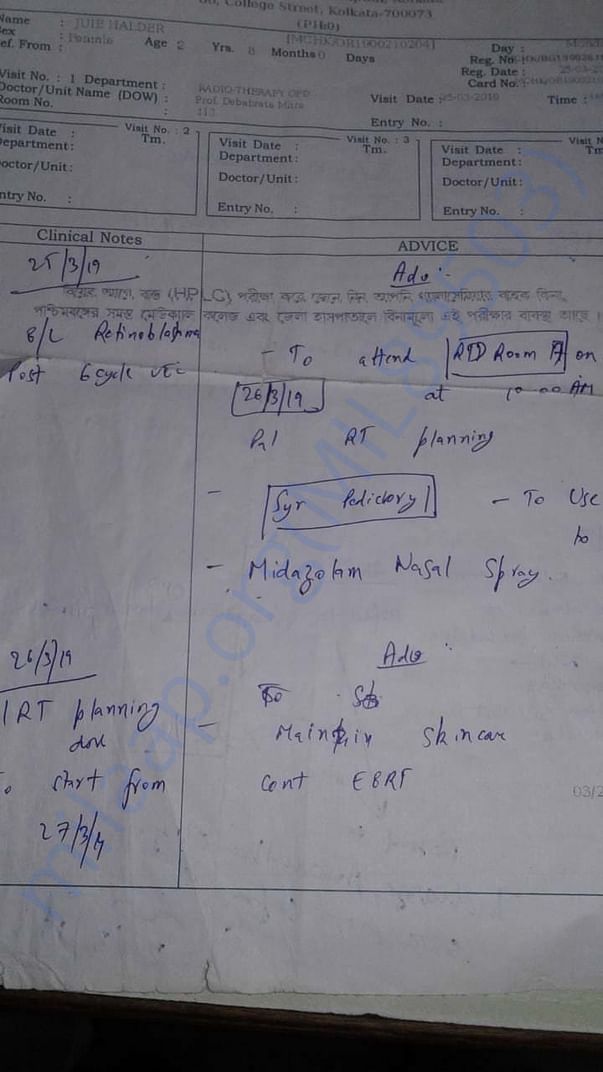 College Street, Kolkata-700073
Name : JUIE HALDER
Sex : Female Age 2 Yrs. 8 Months 0 Days
Ref. From :
[MCHKOOR1900210204]
Day :
Reg. No
Reg. Date :
Card No.
Visit No. : 1 Department : RADIO-THERAPY OPD
Doctor/Unit Name (DOW) : Prof. Debabrata Mitra
Room No. :
Visit Date :25-03-2019 Time :
Entry No. :
Visit Date : Visit No. : 2
Department: Tm.
Doctor/Unit:
Entry No. :
Visit Date : Visit No. : 3
Department: Tm.
Doctor/Unit:
Entry No. :
Visit Date :
Department:
Doctor/Unit:
Entry No. :
Clinical Notes
ADVICE
25/3/19
Adv :-
বিয়ের আগে, রক্ত (HPLC) পরীক্ষা করে জেনে নিন আপনি থ্যালাসেমিয়ার বাহক কিনা,
পশ্চিমবঙ্গের সমস্ত মেডিক্যাল কলেজ এবং জেলা হাসপাতালে বিনামূল্যে এই পরীক্ষার ব্যবস্থা আছে।
B/L Retinoblastoma
Post 6 cycle VEC
- To attend RTD Room on
26/3/19 at 10-00 AM
RT planning
- Syr Pedicloryl - To Use
to
- Midazolam Nasal Spray.
26/3/19
Adv
RT planning
done
To start from
27/3/19
- Maintain Skin care
Cont EBRT
03/2
milaap.org(MIL89503)